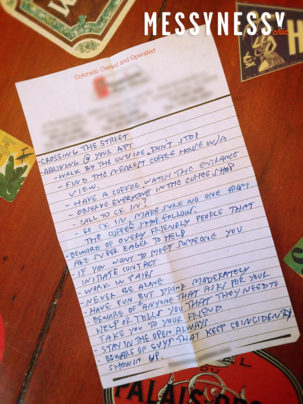 MESSYNESSY
chic
Colorado Owned and Operated
- CROSSING THE STREET
- ARRIVING @ YOUR APT
- WALK BY THE OUTSIDE, DON'T STOP
- FIND THE NEAREST COFFEE HOUSE W/A
VIEW.
- HAVE A COFFEE, WATCH THE ENTRANCE
- OBSERVE EVERYONE IN THE COFFEE SHOP
- CALL TO CK IN?
- GO CK IN, MAKE SURE NO ONE FROM
THE COFFEE SHOP FOLLOWS.
- BEWARE OF OVERLY FRIENDLY PEOPLE THAT
ARE SUPER EAGER TO HELP
- IF YOU WANT TO MEET SOMEONE YOU
INITIATE CONTACT
- WORK IN PAIRS
- NEVER BE ALONE
- HAVE FUN BUT DRINK MODERATELY
- BEWARE OF ANYONE THAT ASKS FOR YOUR
HELP OR TELLS YOU THAT THEY NEED TO
TAKE YOU TO YOUR FRIEND
- STAY IN THE OPEN ALWAYS
- BEWARE OF GUYS THAT KEEP COINCIDENTLY
SHOWIN UP.
PALAIS